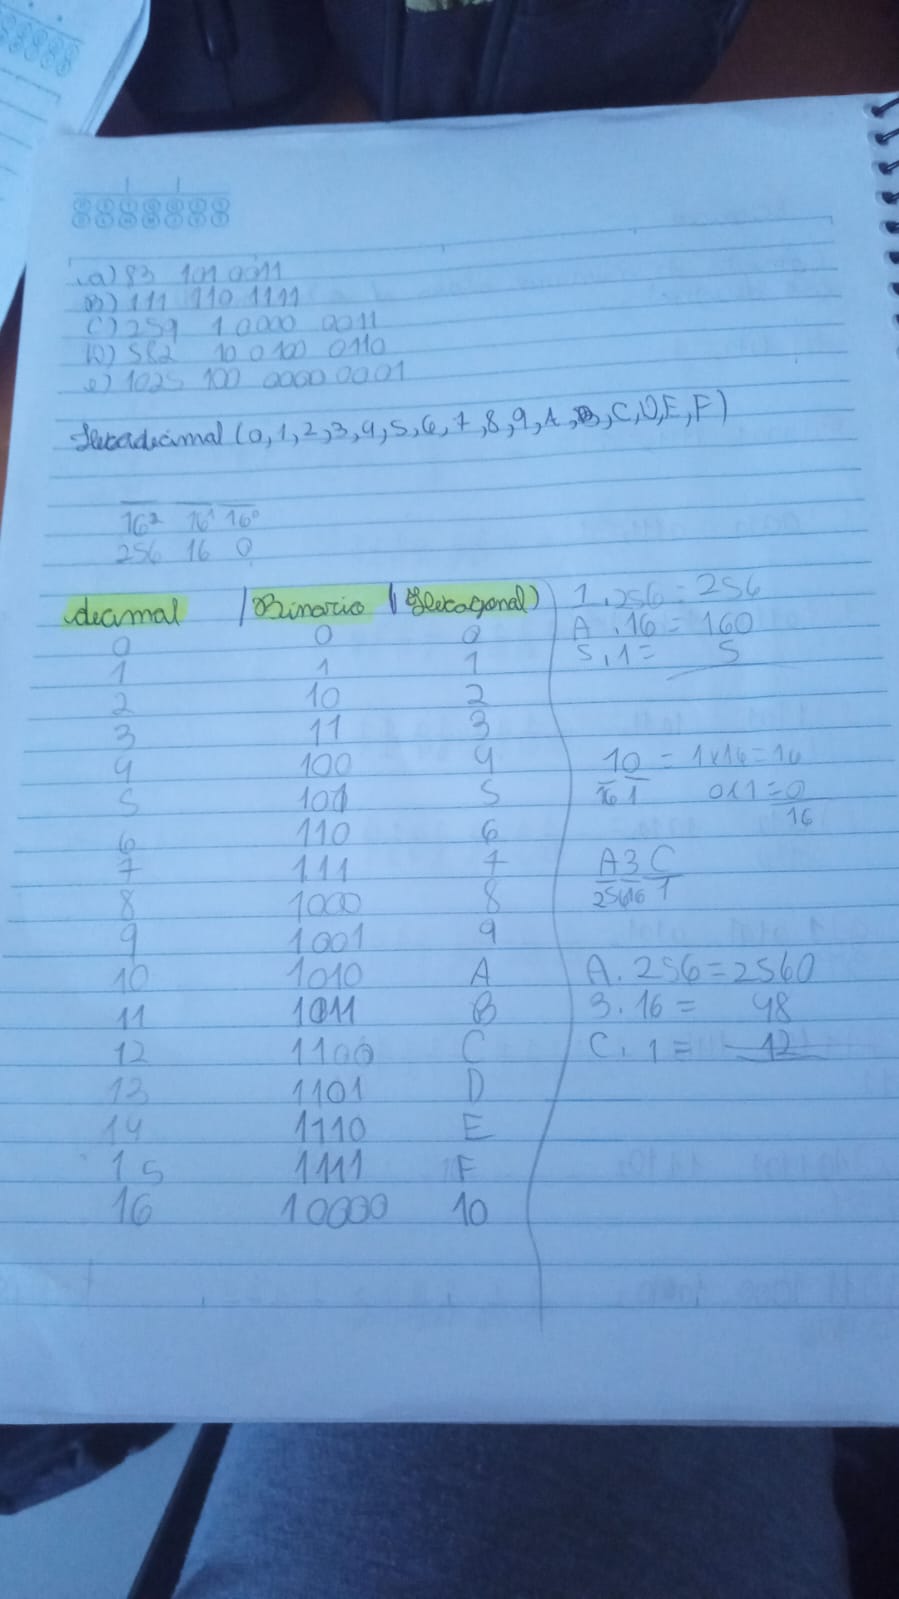 a) 83 101 0011
B) 111 110 1111
C) 259 1 0000 0011
D) 582 10 0100 0110
e) 1025 100 0000 0001
Hexadecimal (0,1,2,3,4,5,6,7,8,9,A,B,C,D,E,F)
16² 16¹ 16⁰
256 16 0
decimal | Binario | Hexagonal)
0 0 0
1 1 1
2 10 2
3 11 3
4 100 4
5 101 5
6 110 6
7 111 7
8 1000 8
9 1001 9
10 1010 A
11 1011 B
12 1100 C
13 1101 D
14 1110 E
15 1111 F
16 10000 10
1.256=256
A.16=160
5.1= 5
10 = 1x16=16
16 1 0x1=0
16
A3C
256 16 1
A.256=2560
3.16= 48
C.1= 12